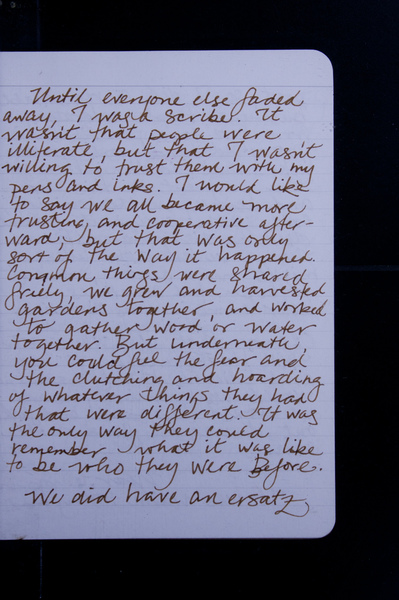 Until everyone else faded
away, I was a scribe. It
wasn't that people were
illiterate, but that I wasn't
willing to trust them with my
pens and inks. I would like
to say we all became more
trusting and cooperative after-
ward, but that was only
sort of the way it happened.
Common things were shared
freely, we grew and harvested
gardens together, and worked
to gather wood or water
together. But underneath,
you could feel the fear and
the clutching and hoarding
of whatever things they had
that were different. It was
the only way they could
remember what it was like
to be who they were Before.
We did have an ersatz